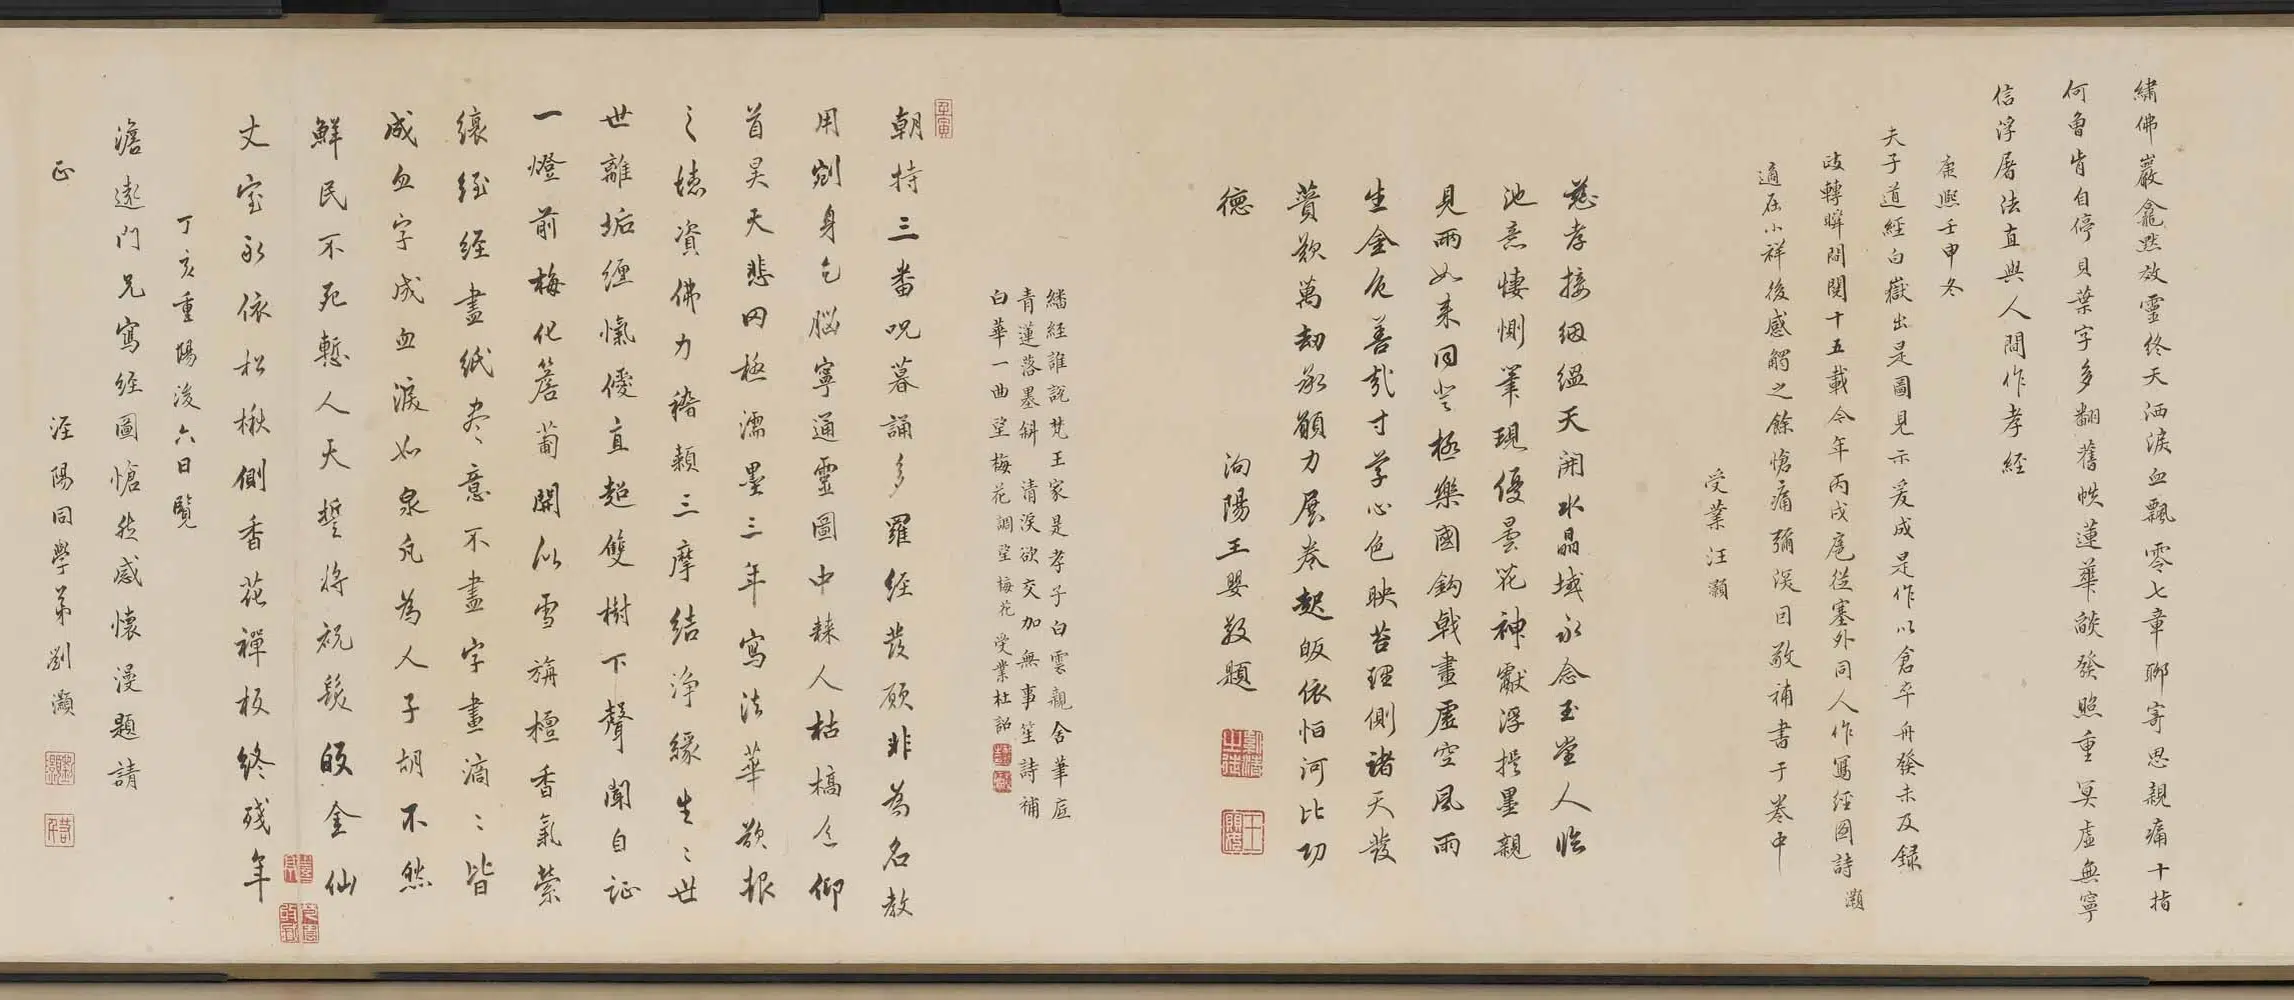 繡佛巖龕默放靈終天洒淚血飄零七章聊寄思親痛十指
何曾肯自停貝葉字多翻舊帙蓮華燄發照重冥虛無寧
信浮屠法直與人間作孝經
康熙壬申冬
夫子道經白嶽出是圖見示爰成是作以倉卒舟發未及錄
政轉瞬間閱十五載今年丙戌扈從塞外同人作寫經圖詩灝
適在小祥後感觸之餘愴痛彌深因敬補書于卷中
受業汪灝
慈孝接絪縕天開水晶域永念玉堂人臨
池意悽惻筆現優曇花神獻浮提墨親
見兩如來同登極樂國鈎戟畫虛空風雨
生金石善哉寸草心色映苔理側諸天發
贊歎萬劫承願力展卷起皈依怕河比功
德
洵陽王嬰敬題
繙經誰說梵王家是孝子白雲親舍筆底
青蓮落墨斜清淚欲交加無事笙詩補
白華一曲望梅花調望梅花受業杜詔
朝持三番呪暮誦多羅經發願非為名教
用剜身乞腦寧通靈圖中棘人枯槁色仰
首昊天悲罔極濡墨三年寫法華欲報
之德資佛力稽顙三摩結淨緣生生世
世離垢纏愾僾直超雙樹下聲聞自證
一燈前梅化簷蔔開似雪旃檀香氣縈
縗絰經盡紙盡意不盡字畫滴滴皆
成血字成血淚如泉凡為人子胡不然
鮮民不死慙人天誓將祝髮皈金仙
丈室永依松楸側香花禪板終殘年
丁亥重陽後六日覽
澹遠門兄寫經圖愴然感懷漫題請
正
涇陽同學弟劉灝